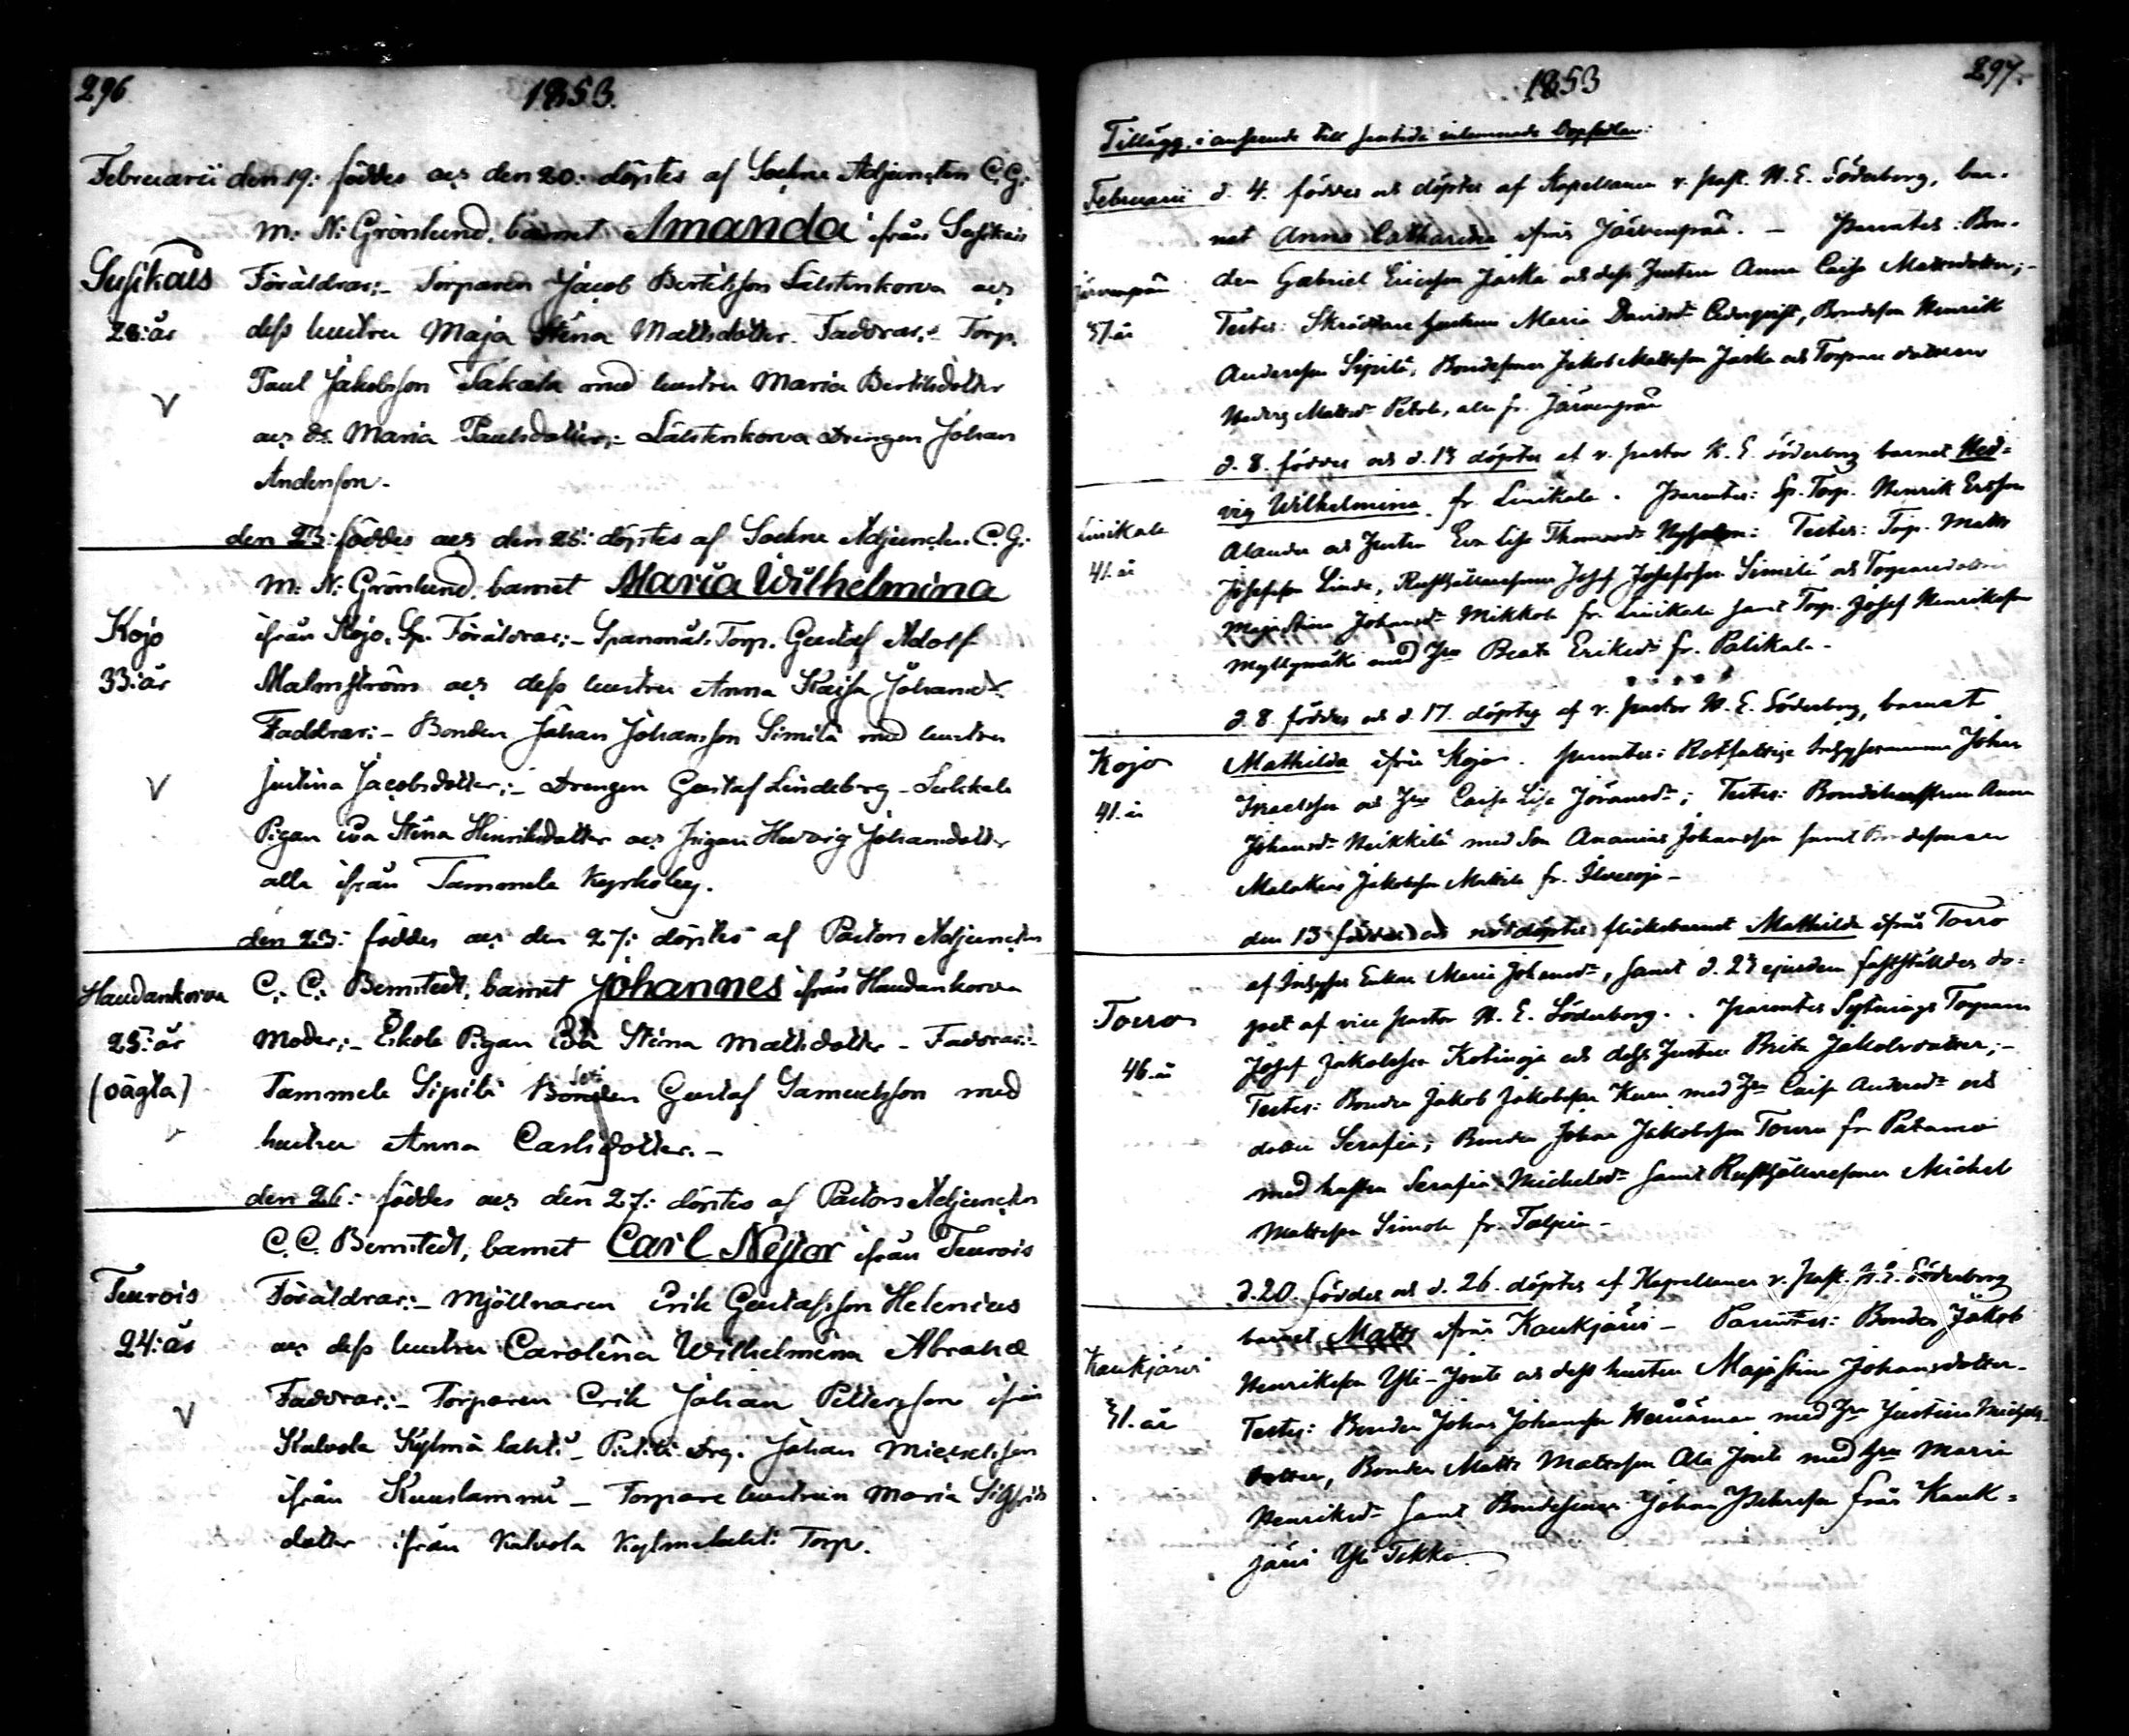 296.
1853.
Februarii den 19: föddes och den 20: döptes af Sockne Adjuncten C. G:
M: N: Grönlund, barnet Amanda ifrån Susikais
Susikais
Föräldrar:- Torparen Jacob Bertilsson Lälstenkorva och
28: år
dess hustru Maja Stina Mattsdotter. Faddrar:- Torp.
Paul Jakobsson Takala med hustru Maria Bertilsdotter
och dr. Maria Paulsdotter;- Lälstenkorva Drengen Johan
Andersson.
den 23: föddes och den 25: döptes af Sockne Adjuncten C. G:
M: N: Grönlund, barnet Maria Wilhelmina
Kojo
ifrån Kojo. Sp. Föräldrar:- Spanmåls Torp. Gustaf Adolf
33: år
Malmström och dess hustru Anna Kajsa Johansdr.
Faddrar:- Bonden Johan Johansson Simila med hustru
Justina Jacobsdotter;- Drengen Gustaf Lindeberg - Sukkala
Pigan Eva Stina Henriksdotter och Pigan Hedvig Johansdotter
alla ifrån Tammela Kyrkoby.
den 23: föddes och den 27: döptes af Pastors Adjuncten
Haudankorva
C. C. Bernstedt, barnet Johannes ifrån Haudankorva
25: år
Moder:- Eskola Pigan Eva Stina Mattsdotter - Faddrar:-
(oägta)
Tammela Sipilä Bonden Gustaf Samuelsson med
hustru Anna Carlsdotter. -
den 26: föddes och den 27: döptes af Pastors Adjuncten
C. C. Bernstedt, barnet Carl Nestor ifrån Teurois
Teurois
Föräldrar:- Mjöllnaren Erik Gustafsson Helenius
24: år
och dess hustru Carolina Wilhelmina Abrahd
Faddrar:- Torparen Erik Johan Pettersson ifrån
Kalvola Kylmä lahti - Drg. Johan Michelsson
ifrån Kuuslammi - Torpare hustrun Maria Sigfrids
dotter ifrån Kalvola Kylmelahti Torp.
1853
297.
Tillägg i anseende till framtida inlemnade Dopsedlar:
Februarii d. 4. föddes och döptes af Kapellanen v. Past. N. E. Söderborg, bar-
net Anna Catharina ifrån Järvenpää. - Parentes: Bon-
Järvenpää
den Gabriel Ericsson Jaska och dess hustru Anna Caisa Mattsdotter;-
37. år
Testes: Skräddare hustrun Maria Davidsdr Cederqvist, Bondeson Henrik
Andersson Sipilä, Bondesonen Jakob Mattsson Jaska och Torpare dottren
Hedvig Mattsdr Petola, alla fr. Järvenpää
d. 8. föddes och d. 13 döptes af v. Pastor N. E. Söderborg barnet Hed-
vig Wilhelmina fr. Liesikala. Parentes: Sp. Torp. Henrik Ersson
Alander och hustru Eva Lisa Thomasdr Testes: Torp. Matts
41. år
Josefsson Linde, Rusthållaresonen Josef Josefsson Similä och Torparedottren
Maja Stina Johansdr Mikkola fr. Liesikala samt Torp. Josef Henriksson
Myllymäki med Hru Beata Eriksdr fr. Patikala -
d. 8. föddes och d. 17. döptes af v. Pastor N. E. Söderborg, barnet
Kojo
Mathilda ifrån Kojo. Parentes: Rotfattige Inhysesmannen Johan
41. år
Israelsson och Hru Caisa Lisa Jöransdr; Testes: Bondehustrun Anna
Johansdr Heikkilä med Son Ananias Johansson samt Bondesonen
Malakias Jakobsson Mattila fr. Ilvesoja -
den 13 föddes och nöddöptes flickebarnet Mathilda ifrån Torro
af Inhyses Enkan Maria Johansdr, samt d. 23 ejusdem fastställdes do-
Torro
pet af vice pastor N. E. Söderborg. Parentes Sytnings Torparen
46. år
Josef Jakobsson Kotioja och dess hustru Brita Jakobsdotter;-
Testes: Bonden Jakob Jakobsson Kuru med Hru Caisa Andersdr och
dotter Serafia; Bonden Johan Jakobsson Touru fr. Patamo
med hustru Serafia Michelsdr samt Rusthållaresonen Michel
Mattsson Simola fr. Talpia -
d. 20. föddes och d. 26. döptes af Kapellanen v. Past. N. E. Söderborg
barnet Matts ifrån Kaukjärvi - Parentes: Bonden Jakob
Kaukjärvi
Henriksson Yli-Jouti och dess hustru Maja Stina Johansdotter -
31. år
Testes: Bonden Johan Johansson med Hru Justina Michels-
dotter, Bonden Matts Mattsson Ala Jouti med Hru Maria
Henriksdr samt Bondesonen Johan Petersson från Kauk-
järvi Yli Tekko.